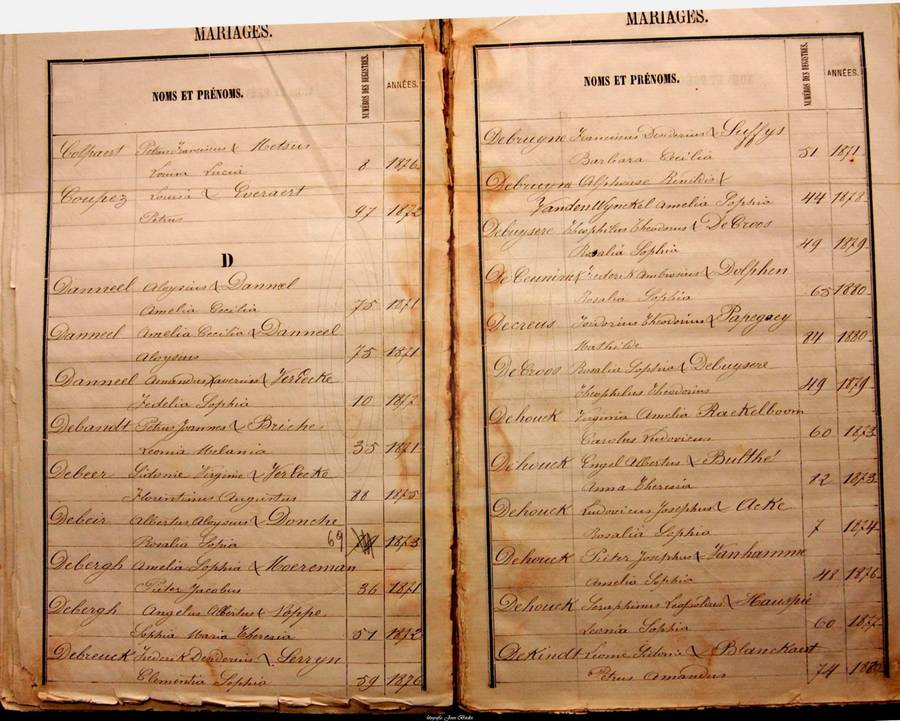 MARIAGES.
NOMS ET PRÉNOMS. NUMÉROS DES REGISTRES. ANNÉES.
Colpaert Petrus Franciscus & Metsu
Louisa Lucia 8 1876
Coupez Louisa & Everaert
Petrus 97 1872
D
Danneel Aloysius & Danneel
Amelia Cecilia 75 1871
Danneel Amelia Cecilia & Danneel
Aloysius 75 1871
Danneel Amandus Xaverius & VerEecke
Fedelia Sophia 10 1872
Debandt Petrus Joannes & Briche
Leonia Melania 35 1871
Debeer Sidonie Virginie & VerEecke
Florentinus Augustus 88 1875
Debeir Albertus Aloysius & Donche
Rosalia Sophia 69 1873
Debergh Amelia Sophia & Moereman
Pieter Jacobus 36 1871
Debergh Angelus Albertus & Noppe
Sophia Maria Theresia 51 1872
Debreuck Frederik Desiderius & Serryn
Clementia Sophia 59 1876
MARIAGES.
NOMS ET PRÉNOMS. NUMÉROS DES REGISTRES. ANNÉES.
Debruyne Franciscus Desiderius & Seffys
Barbara Cecilia 51 1871
Debruyne Alphonse Benildis &
VandenWynckel Amelia Sophia 44 1878
Debuysere Theophilus Theodorus & DeCroos
Rosalia Sophia 49 1879
DeCeuninck Frederik Ambrosius & Dolphen
Rosalia Sophia 65 1880
Decreus Isidorius Theodorius & Papegaey
Mathilde 84 1880
DeCroos Rosalia Sophia & Debuysere
Theophilus Theodorius 49 1879
Dehouck Virginia Amelia Raekelboom
Carolus Ludovicus 60 1873
Dehouck Engel Albertus & Bulthé
Anna Theresia 82 1873
Dehouck Ludovicus Josephus & Acke
Rosalia Sophia 7 1874
Dehouck Pieter Josephus & Vanhamme
Amelia Sophia 48 1876
Dehouck Seraphinus Leopoldus & Hauspie
Leonia Sophia 60 1877
DeKindt Leonie Sidonie & Blanckaert
Petrus Amandus 74 1880